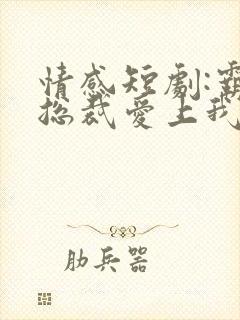 情感短劇:
總裁愛上我
肋兵器